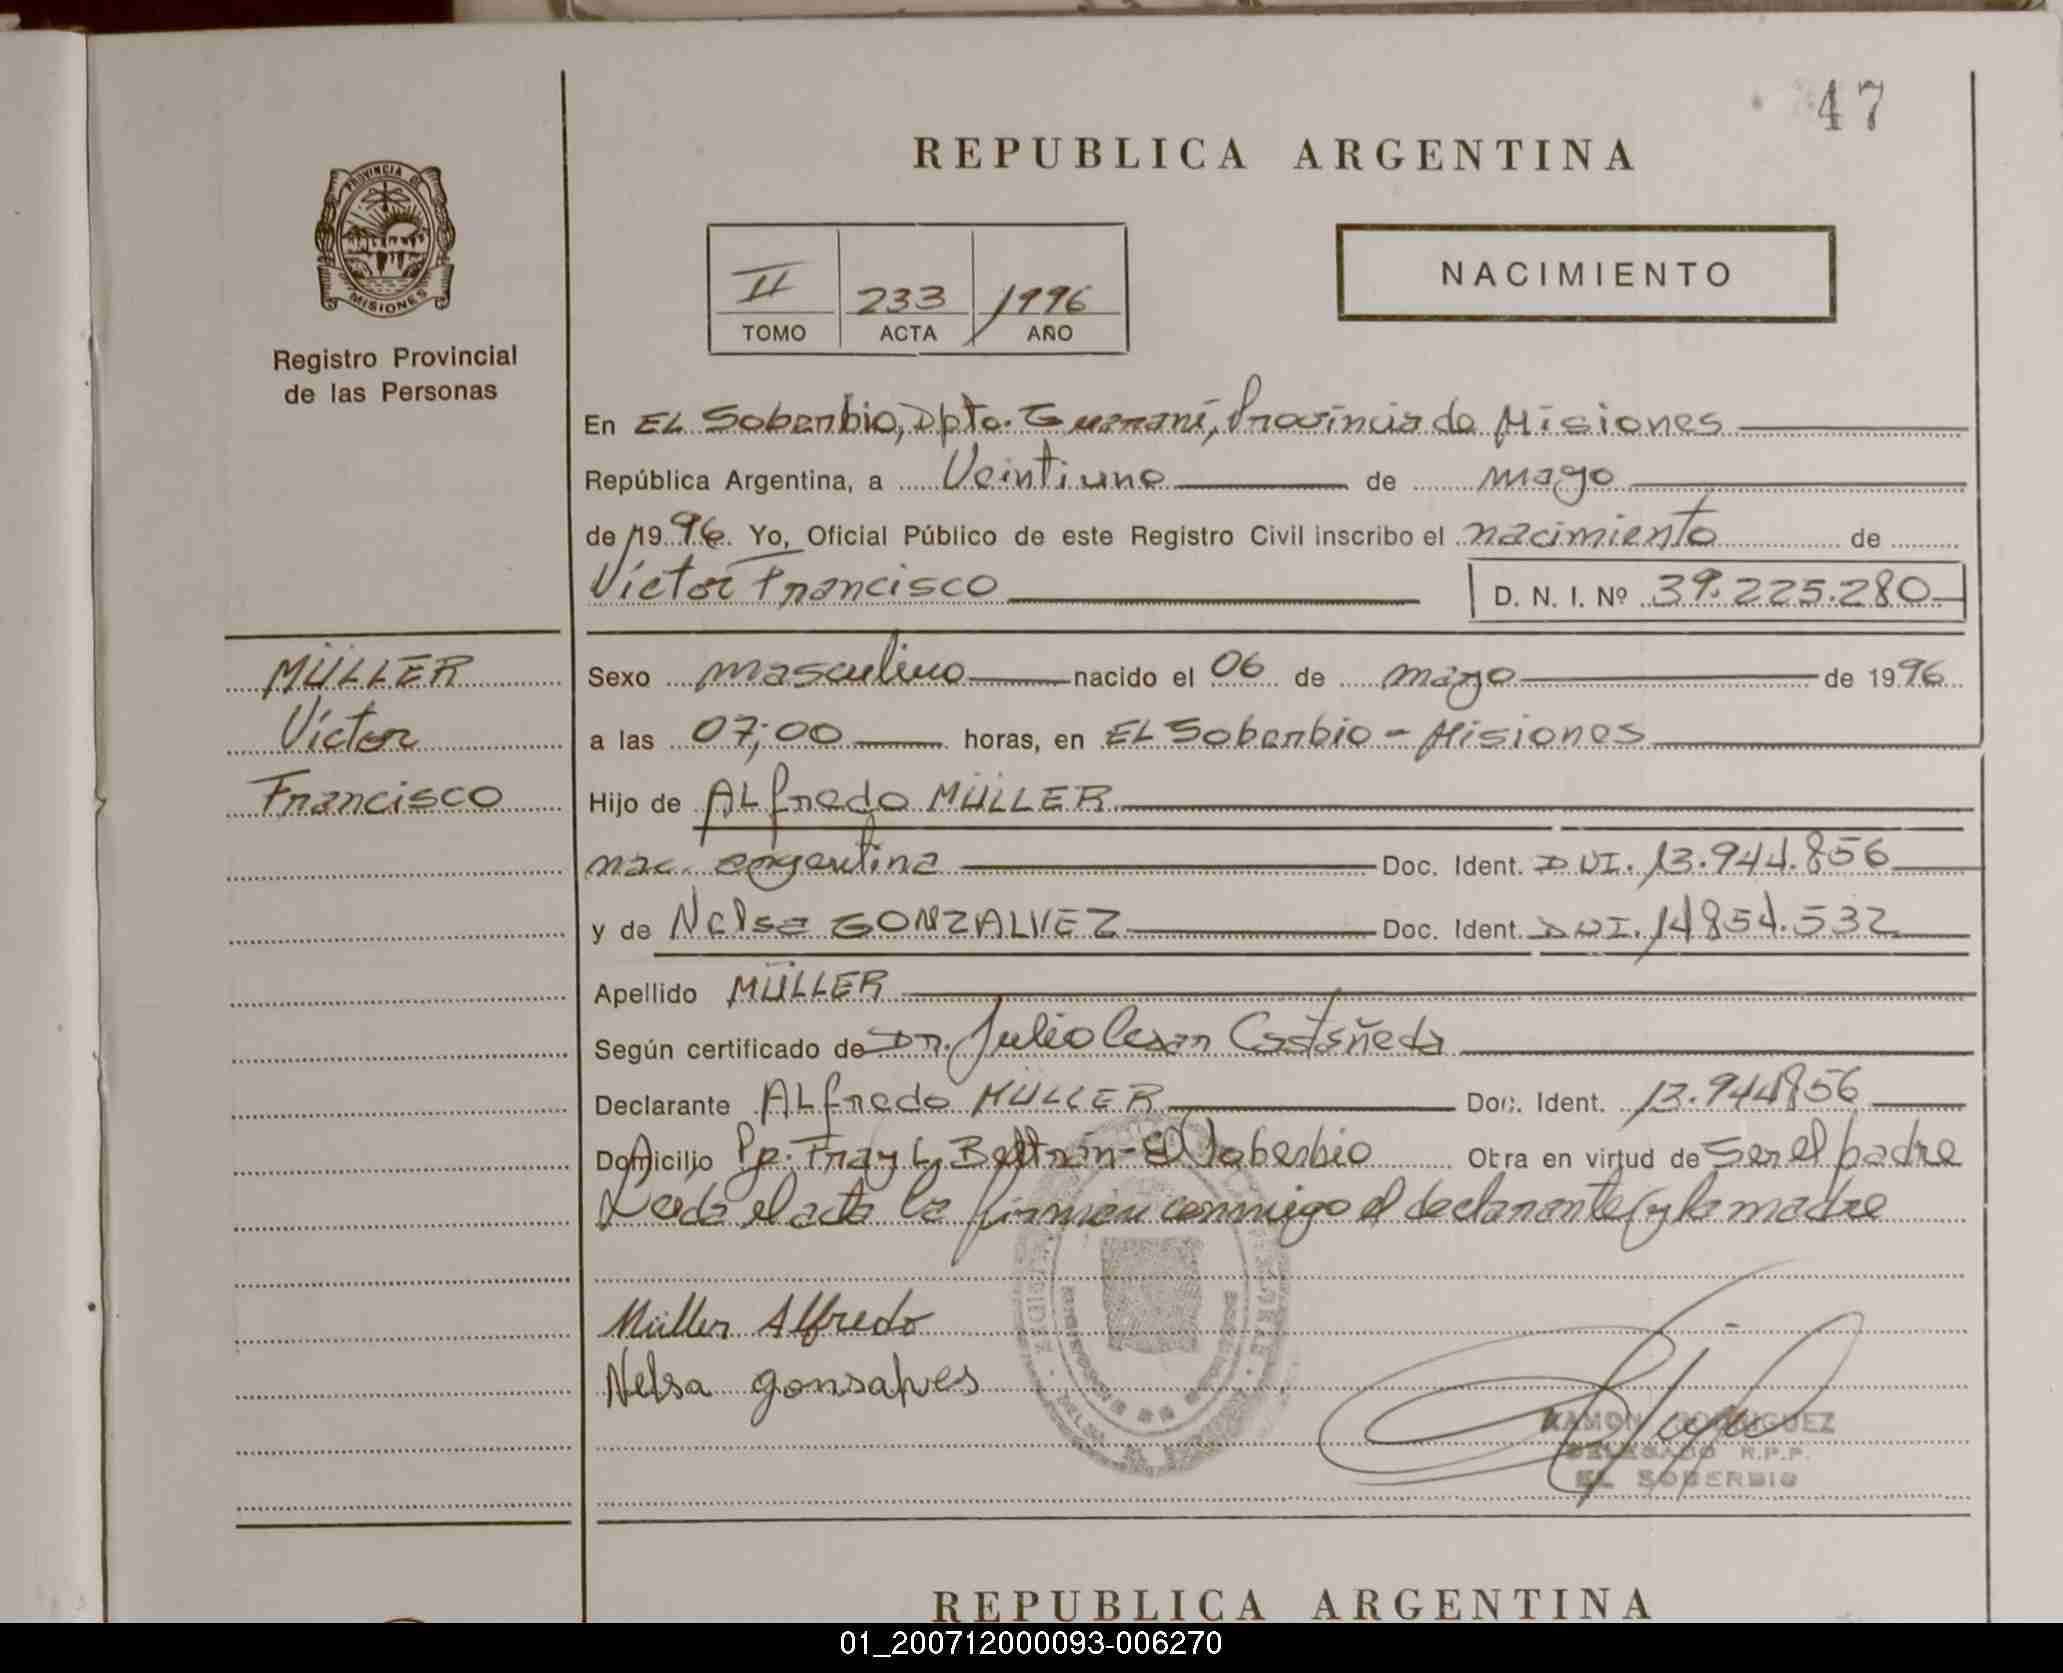 47
REPUBLICA ARGENTINA
PROVINCIA DE
MISIONES
Registro Provincial
de las Personas
II 233 1996
TOMO ACTA AÑO
NACIMIENTO
En EL Soberbio, Dpto. Guaraní, Provincia de Misiones
República Argentina, a Veintiuno de mayo
de 1996. Yo, Oficial Público de este Registro Civil inscribo el nacimiento de
Víctor Francisco D. N. I. Nº 39.225.280
MÜLLER
Víctor
Francisco
Sexo masculino nacido el 06 de mayo de 1996
a las 07;00 horas, en EL Soberbio - Misiones
Hijo de ALfredo MÜLLER
nac. argentina Doc. Ident. DNI. 13.944.856
y de Nelsa GONZALVEZ Doc. Ident. DNI. 14854.532
Apellido MÜLLER
Según certificado de Dr. Julio Cesar Castañeda
Declarante ALfredo MÜLLER Doc. Ident. 13.944856
Domicilio Pje. Fray L. Beltrán - El Soberbio Obra en virtud de Ser el padre
Leída el acta la firman conmigo el declarante y la madre
Müller Alfredo
Nelsa gonsalves
RAMON RODRIGUEZ
DELEGADO R.P.P.
EL SOBERBIO
REPUBLICA ARGENTINA
01_200712000093-006270